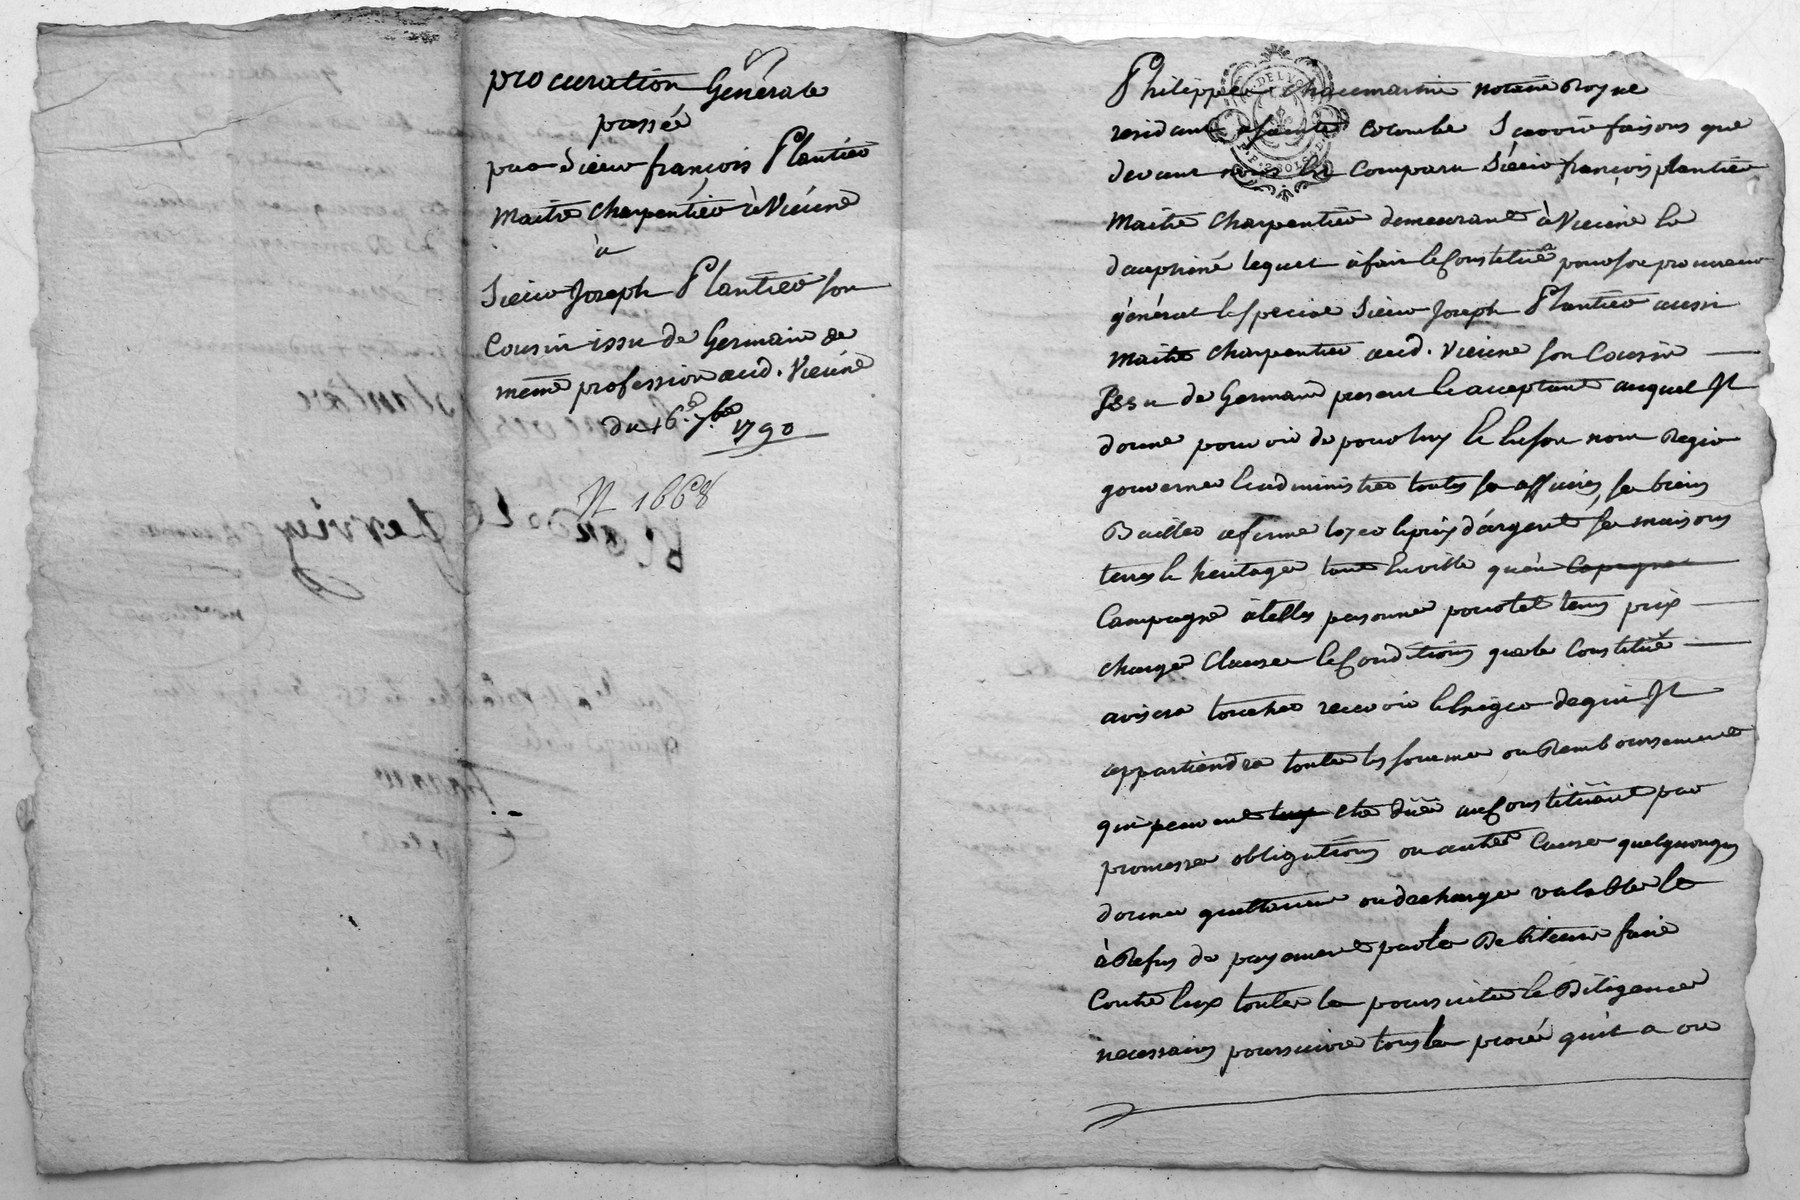 procuration Generale
passée
par Sieur françois Plantier
Maitre Charpentier à Vienne
à
Sieur Joseph Plantier son
Cousin issu de Germain de
meme profession aud. Vienne
du 16.e 7.bre 1790
N 1668
Philippe Chaumartin notaire Royal
residant a sainte Colombe Scavoir faisons que
devant nous est Comparu Sieur françois plantier
Maitre Charpentier demeurant à Vienne En
dauphiné lequel à fait & Constitué pour son procureur
général & special Sieur Joseph Plantier aussi
Maitre Charpentier aud. Vienne son Cousin
Issu de Germain present & acceptant auquel Il
donne pouvoir de pour luy & En son nom Regir
gouverner & administrer toutes ses affaires, ses biens
Bailler a ferme loyer & prix d'argent ses maisons
terres & heritages tant En ville qu'en Capagne
Campagne à telles personnes pour tel tems prix
charges Clauses & Conditions que le Constitué
avisera toucher recevoir & Exiger de qui Il
appartiendra toutes les sommes ou Remboursements
qui peuvent luy etre düës au Constitüant par
promesses obligations ou autres Causes quelquonques
donner quittances ou decharges valables &
à Refus de payement par les Debiteurs faire
Contre Eux toutes les poursuites & Diligences
necessaires poursuivre tous les procés qu'il a ou